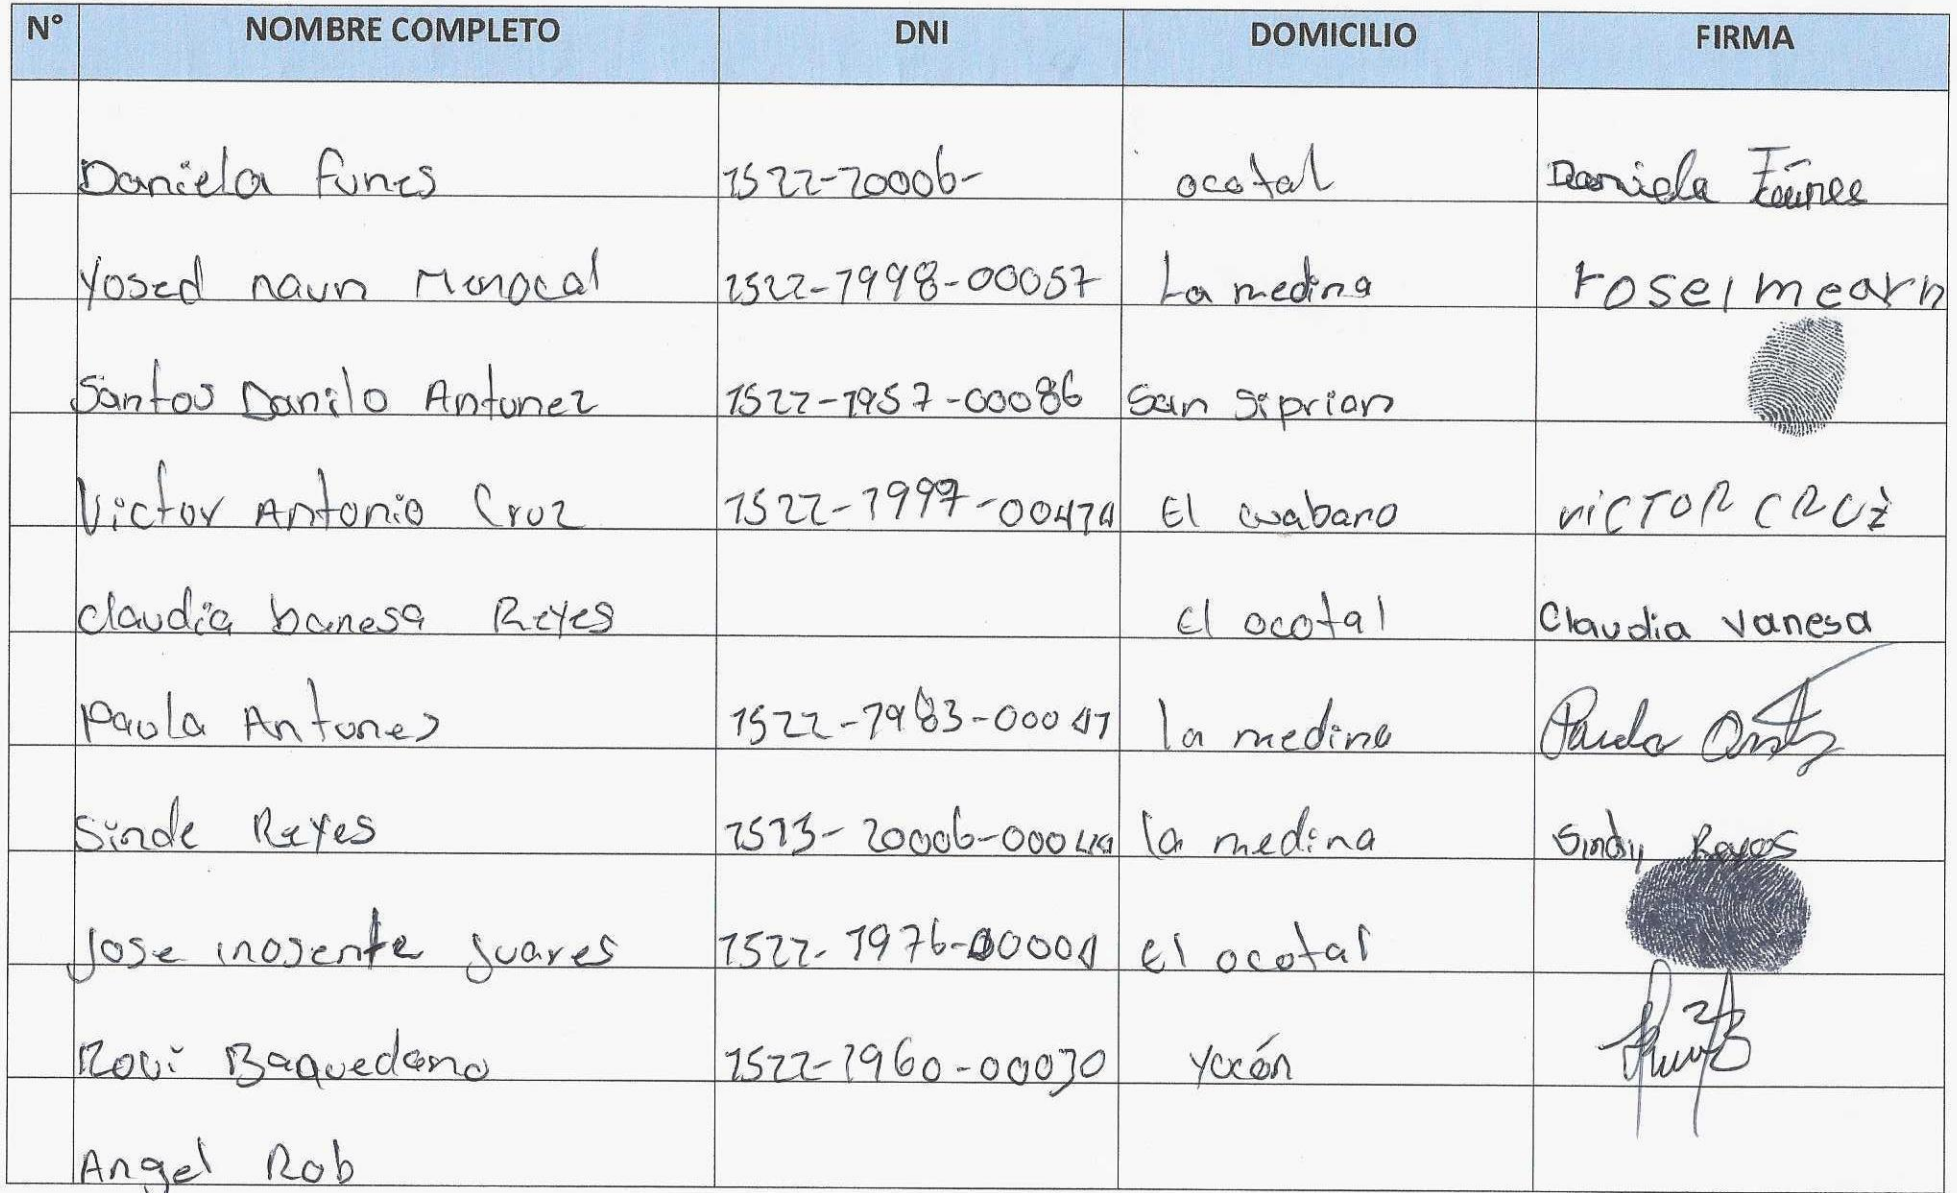 N° NOMBRE COMPLETO DNI DOMICILIO FIRMA
Daniela Funes 1522-20006- ocotal Daniela Fúnes
Yosed naun Monocal 1522-1998-00057 La medina
Santos Danilo Antunez 1522-1957-00086 San Siprian
Victor Antonio Cruz 1522-1997-00474 El VICTOR CRUZ
claudia banesa Reyes El ocotal Claudia Vanesa
Paula Antunes 1522-1983-00041 la medina Paula
Sinde Reyes 1513-20006- la medina Sindy Reyes
Jose inosente Juares 1522-1976-00001 El ocotal
Rovi Baquedano 1522-1960-00030 yocón
Angel Rob